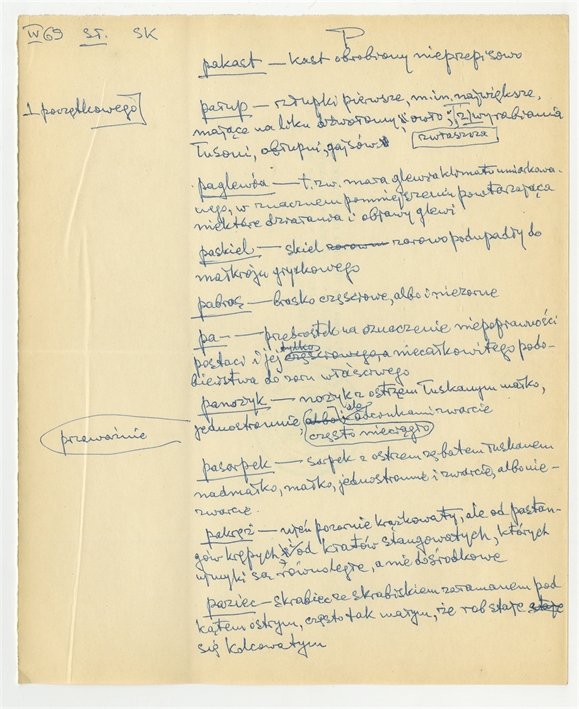 IV 69 ST. SK
P
pakast — kast obrobiony nieprzepisowo
1 początkowego
pałup — rzłupki pierwsze, m.in. największe,
mające na boku
zwłaszcza
tusoni, obłupni, gajsów
paglewia — t.zw. mała glewia klimatu umiarkowa-
nego, w znacznem pomniejszeniu powtarzająca
niektóre działania i objawy glewi
paskiel — skiel zorowo podupadły do
małkroju grytkowego
pabrąs — brąsko częściowe, albo i niezorne
pa- — przedrostek na oznaczenie niepoprawności
tylko
postaci i jej niecałkowitego podo-
bieństwa do zoru właściwego
panożyk — nożyk z ostrzem łuskanym małko,
ale
jednostronnie albo odcinkami zwarcie
często nieciągło
przeważnie
pasarpek — sarpek z ostrzem zębatem łuskanem
nadmałko, małko, jednostronnie i zwarcie, albo nie-
zwarcie.
pakręż — wień pozornie krążkowaty, ale od pastan-
gów krępych i od kratów stangowatych, których
wmyki są równoległe, a nie dośrodkowe
paziec — skrabiec ze skrabiskiem załamanem pod
kątem ostrym, często tak małym, że rab staje staje
się kolcowatym